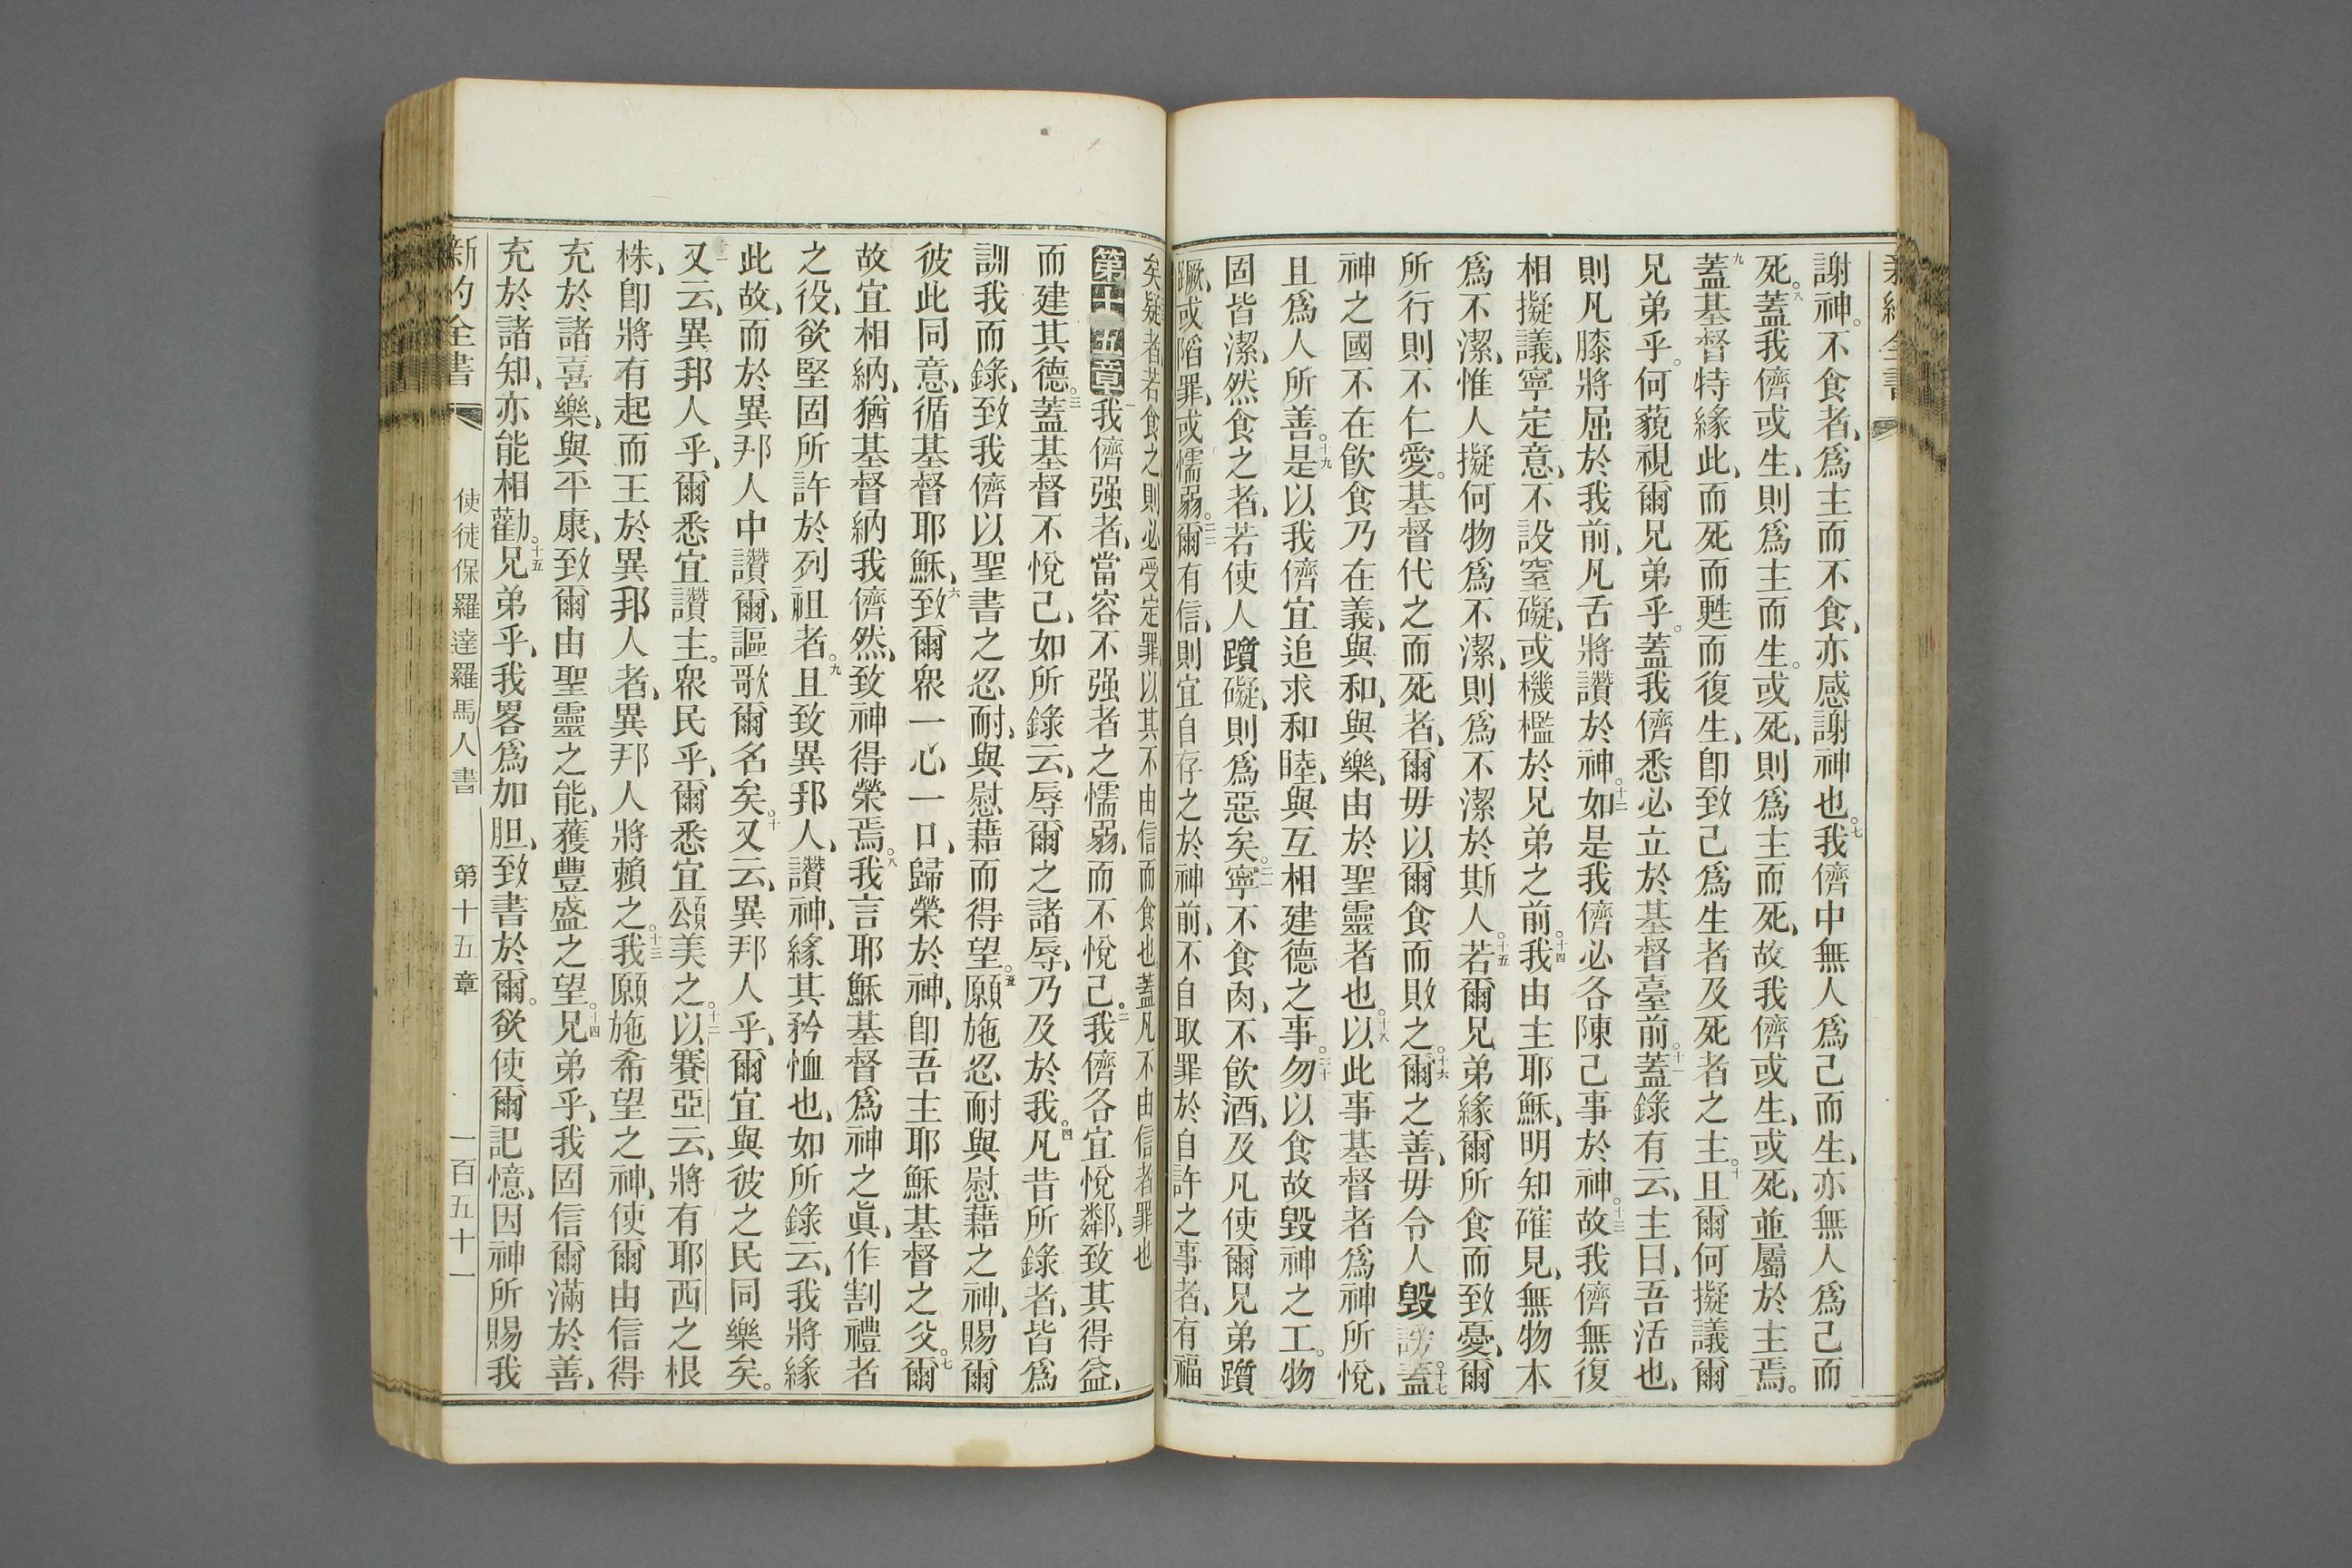 新約全書
謝神。不食者、爲主而不食、亦感謝神也。七我儕中無人爲己而生、亦無人爲己而
死。八蓋我儕或生、則爲主而生。或死、則爲主而死、故我儕或生、或死、並屬於主焉。
九蓋基督特緣此、而死而甦而復生、卽致己爲生者及死者之主。十且爾何擬議爾
兄弟乎。何藐視爾兄弟乎。蓋我儕悉必立於基督臺前。十一蓋錄有云、主曰、吾活也、
則凡膝將屈於我前、凡舌將讚於神。十二如是我儕必各陳己事於神。十三故我儕無復
相擬議、寧定意、不設窒礙、或機檻於兄弟之前。十四我由主耶穌、明知確見、無物本
爲不潔、惟人擬何物爲不潔、則爲不潔於斯人。十五若爾兄弟緣爾所食而致憂、爾
所行則不仁愛。基督代之而死者、爾毋以爾食而敗之。十六爾之善、毋令人毀謗。十七蓋
神之國不在飲食乃在義、與和、與樂、由於聖靈者也。十八以此事基督者爲神所悅、
且爲人所善。十九是以我儕宜追求和睦、與互相建德之事。二十勿以食故毀神之工。物
固皆潔、然食之者、若使人躓礙、則爲惡矣。二一寧不食肉、不飲酒、及凡使爾兄弟躓
蹶、或陷罪、或懦弱。二二爾有信、則宜自存之於神前、不自取罪於自許之事者、有福
矣疑者、若食之則必受定罪以其不由信而食也蓋凡不由信者罪也
第十五章一我儕强者、當容不强者之懦弱、而不悅己。二我儕各宜悅鄰、致其得益、
而建其德。三蓋基督不悅己、如所錄云、辱爾之諸辱、乃及於我。四凡昔所錄者、皆爲
訓我而錄、致我儕以聖書之忍耐、與慰藉而得望。五願施忍耐與慰藉之神、賜爾
彼此同意、循基督耶穌、六致爾衆一心一口、歸榮於神、卽吾主耶穌基督之父。七爾
故宜相納、猶基督納我儕然、致神得榮焉。八我言耶穌基督爲神之眞、作割禮者
之役、欲堅固所許於列祖者。九且致異邦人、讚神、緣其矜恤也、如所錄云、我將緣
此故、而於異邦人中讚爾、謳歌爾名矣。十又云、異邦人乎、爾宜與彼之民同樂矣。
十一又云、異邦人乎、爾悉宜讚主。衆民乎、爾悉宜頌美之。十二以賽亞云、將有耶西之根
株、卽將有起而王於異邦人者、異邦人將賴之。十三我願施希望之神、使爾由信得
充於諸喜樂、與平康、致爾由聖靈之能、獲豐盛之望。十四兄弟乎、我固信爾滿於善、
充於諸知、亦能相勸。十五兄弟乎、我畧爲加胆、致書於爾。欲使爾記憶、因神所賜我
新約全書 使徒保羅達羅馬人書 第十五章 一百五十一